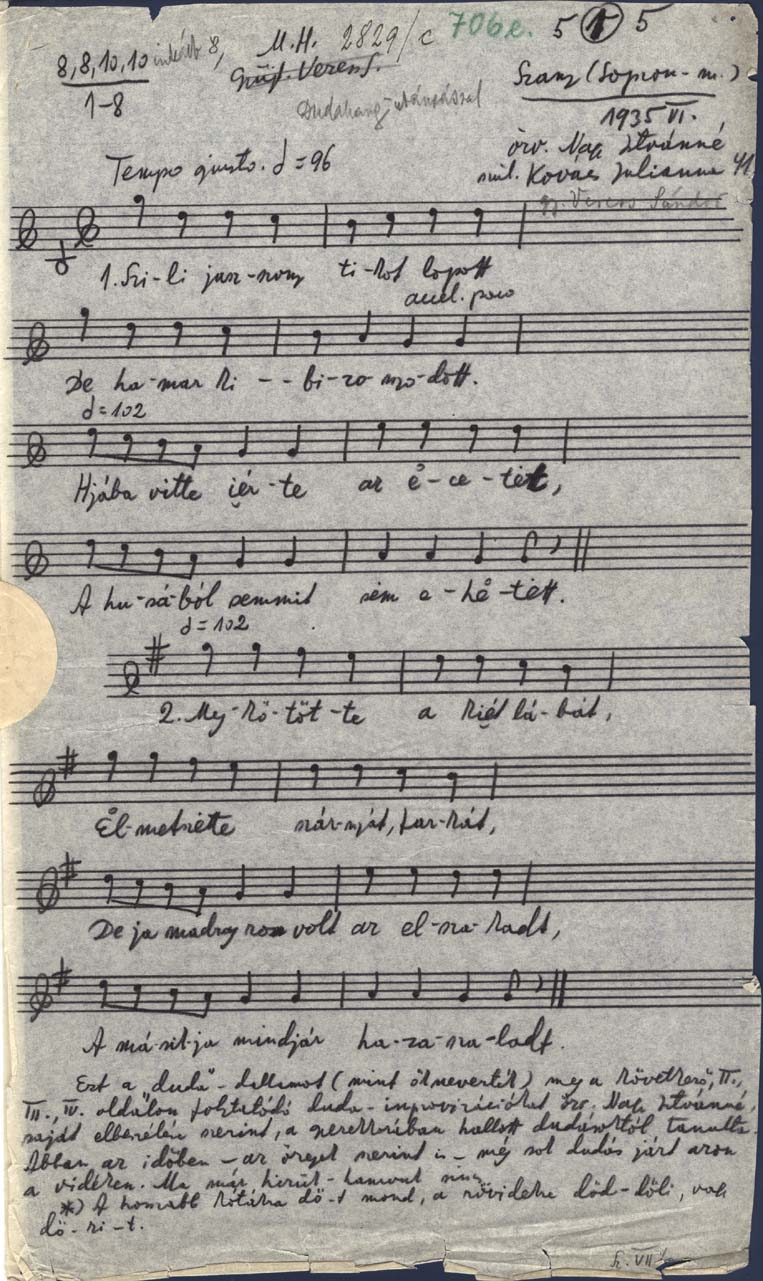 8,8,10,10
1-8
M.H. 2829/c 706e. 5 1 5
Gyűjt. Veress S.
Szany (Sopron-m.)
Dudahang-utánzással
1935 VI.
özv. Nagy Istvánné
szül. Kovács Julianna
gy. Veress Sándor
Tempo giusto. = 96
1. Szi-li jasz-szony ti-kot lopott
De ha-mar ki - - bi-zo-nyo-dott.
= 102
Hjába vitte iér-te az ë-ce-tët,
A hu-sá-ból semmit sëm ë-hë-tëtt.
= 102
2. Meg-kö-töt-te a kiét lá-bát,
El-metszëtte szár-nyát, far-kát,
De ja madzag rosz volt az el-sza-kadt,
A má-sik-ja mindjár ha-za-sza-ladt.
Ezt a "duda"-dallamot (mint ötnevertét) meg a következő, II.,
III., IV. oldalon folytatódó duda-improvizációkat özv. Nagy Istvánné,
saját elbeszélése szerint, a gyerekkorában hallott dudásoktól tanulta.
Abban az időben – az öreget szerint is – még sok dudás járt azon
a vidéken. Ma már hírük-hamvuk sincs.
*) A hosszabb kótára dö-t mond, a rövidekre död-döli, vagy
dö-ri-t.